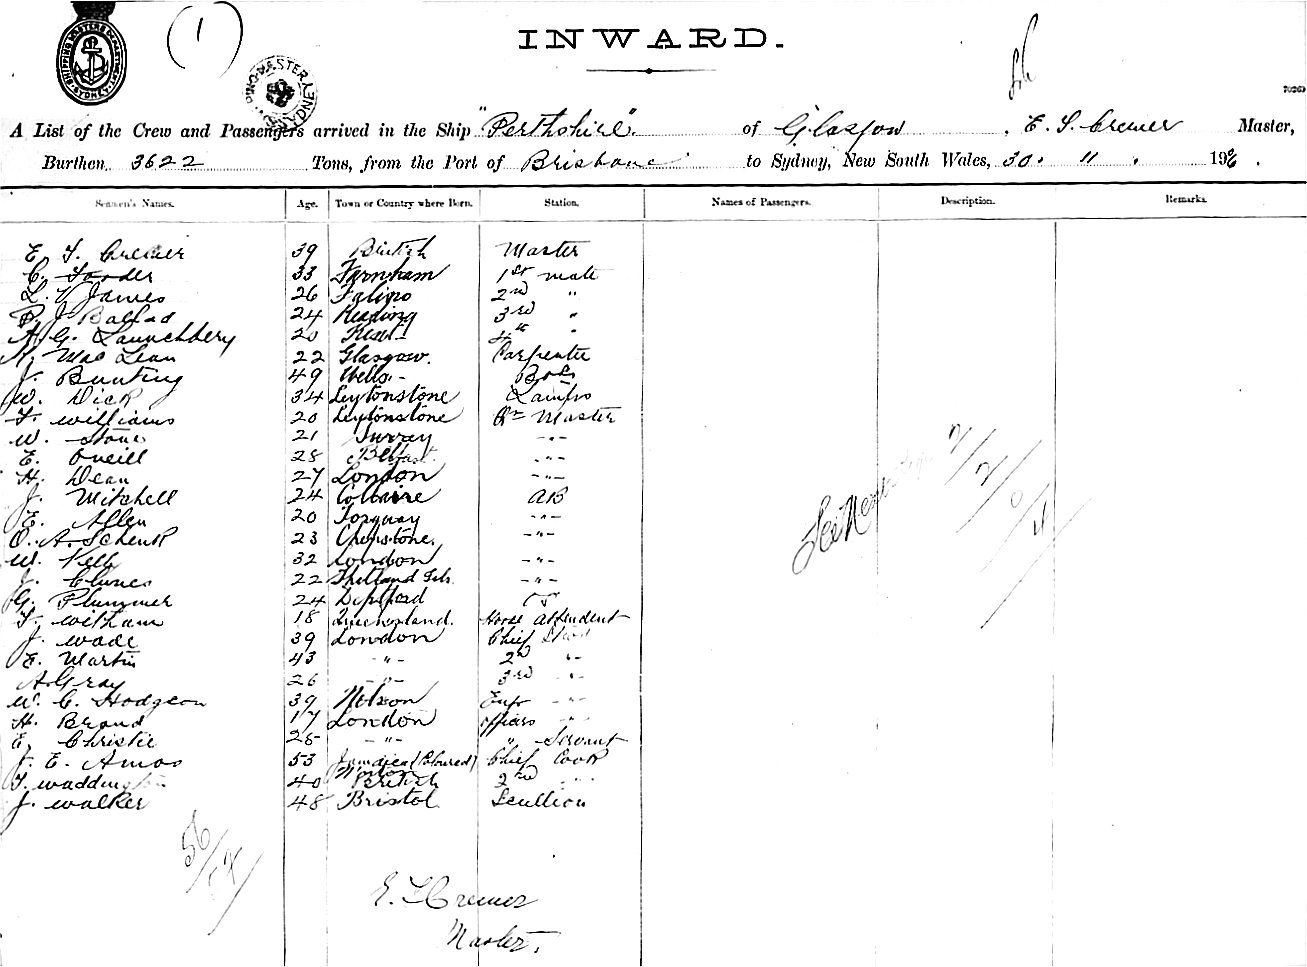 (1)
INWARD.
SHIPPING MASTERS DEPARTMENT SYDNEY
A List of the Crew and Passengers arrived in the Ship "Perthshire" of Glasgow, E. J. Cremer Master,
Burthen 3622 Tons, from the Port of Brisbane to Sydney, New South Wales, 30. " . 19
Seamen's Names. Age. Town or Country where Born. Station. Names of Passengers. Description. Remarks.
E. J. Cremer 39 British Master
C. 33 Farnham 1st mate
L. V. James 26 2nd "
J. Ballad 24 Reading 3rd "
G. Launchbery 20 Kent 4th "
MacLean 22 Glasgow. Carpenter
J. Bunting 49 Wells -
W. Dick 34 Leytonstone Lamps
F. Williams 20 Leytonstone Qr Master
W. Stone 21 Surrey -"-
E. Oneill 28 Belfast. -"-
H. Dean 27 London -"-
J. Mitchell 24 AB
E. Allen 20 Torquay -"-
O. A. Schenk 23 -"-
W. Kelly 32 London -"-
J. Clunes 22 Shetland Isls. -"-
G. Plummer 24 Deptford
F. Witham 18 Queensland. Horse Attendent
J. Wade 39 London Chief Stwd
E. Martin 43 -"- 2nd "-
A. Gray 26 -"- 3rd "-
W. C. Hodgson 39 Nelson -"-
H. Brand 17 London officers -"-
E. Christie 25 -"- " Servant
J. E. Amos 53 Jamaica (Coloured) Chief Cook
T. Waddington 40 British 2nd -"-
J. Walker 48 Bristol Scullion
E. J. Cremer
Master.